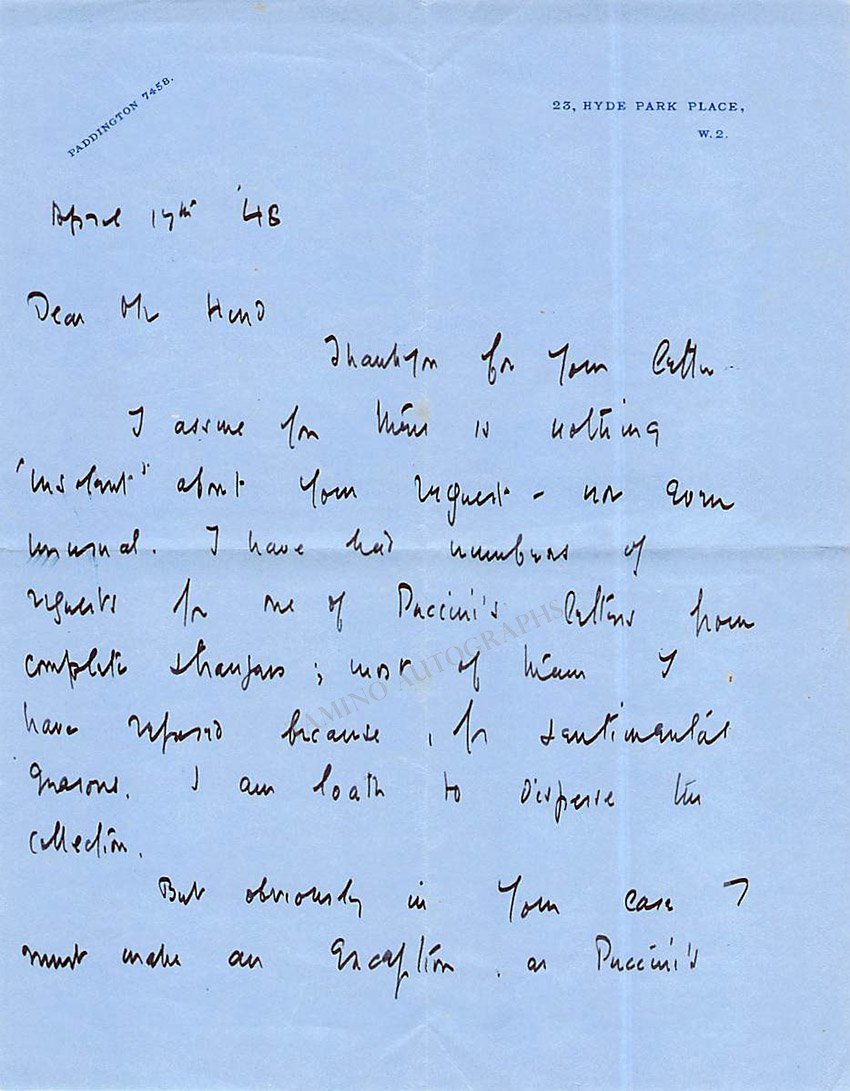 PADDINGTON 7458.
23, HYDE PARK PLACE,
W.2.
April 17th '48
Dear Mr
Thank you for your letter
I assure you there is nothing
about your request - nor even
unusual. I have had numbers of
requests for one of Puccini's letters from
complete strangers; most of them I
have refused because, for sentimental
reasons, I am loath to disperse the
collection.
But obviously in your case I
must make an exception, as Puccini's
TAMINO AUTOGRAPHS